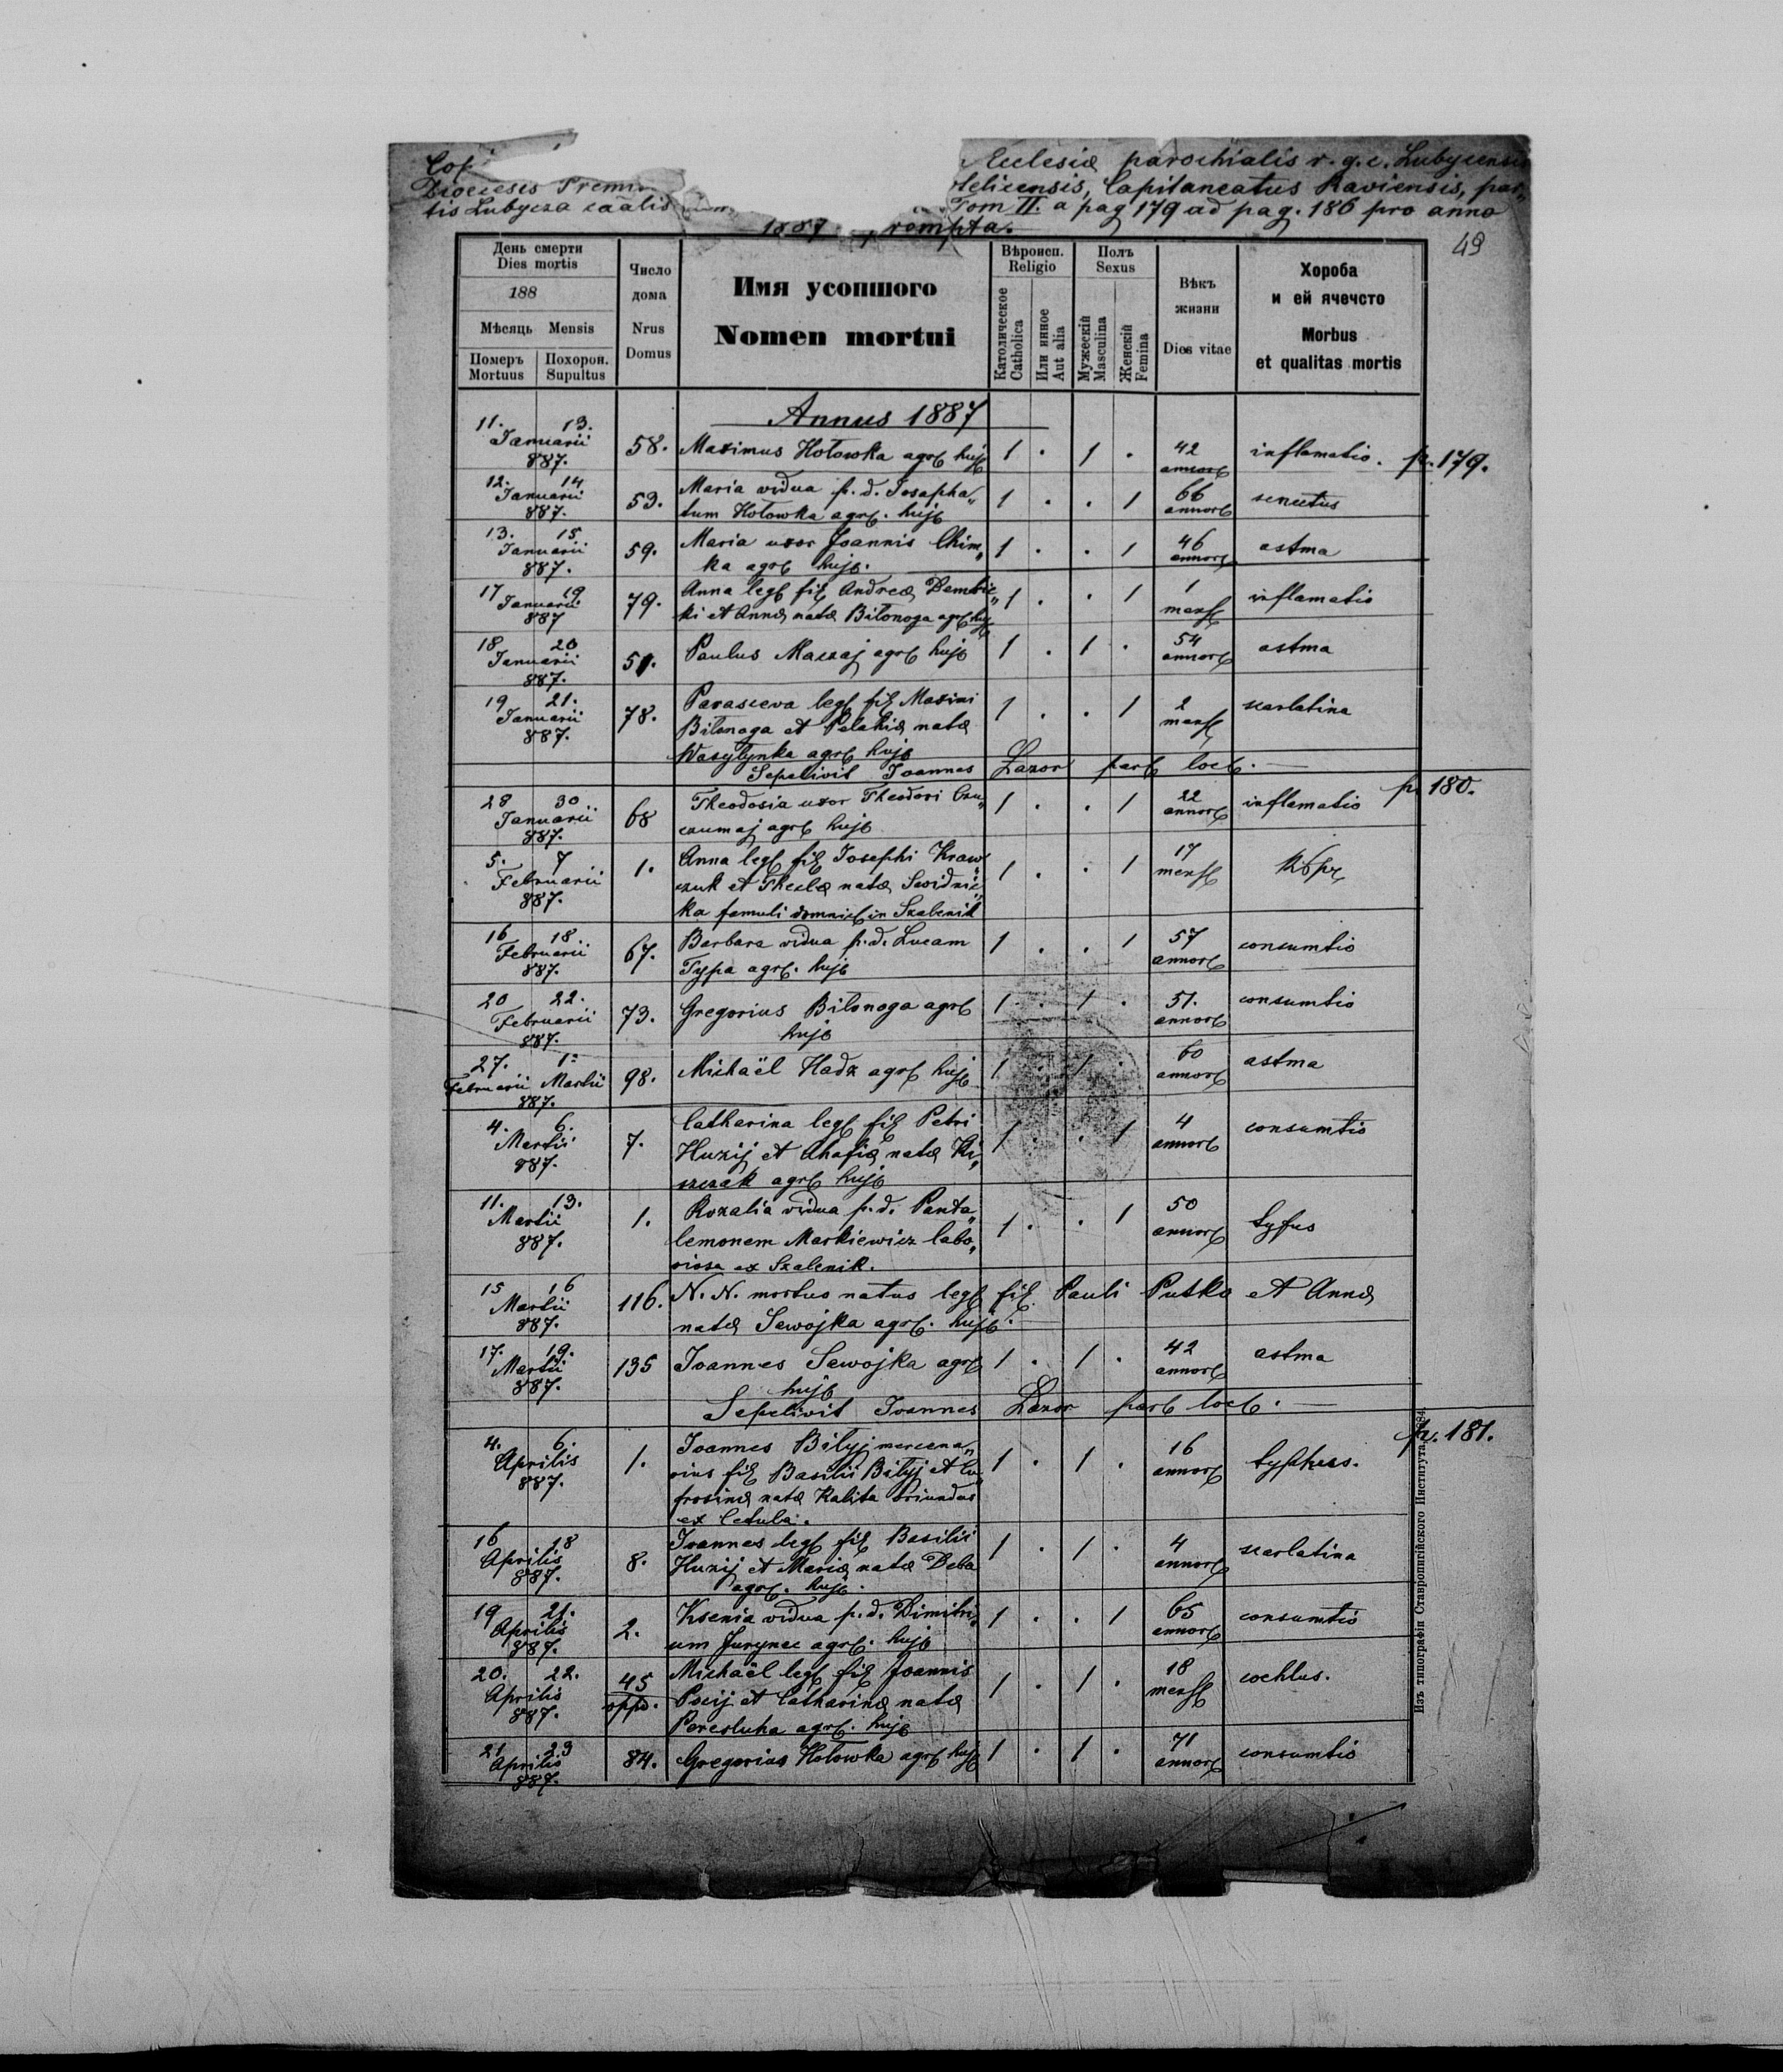 Ecclesiæ parochialis r. g. c. Lubycensis
Dioecesis Premi
Capitaneatus Raviensis, par„
tis Lubycza caalis
Tom II. a pag 179 ad pag. 186 pro anno
1887 rompta.
49
День смерти
Dies mortis
188
Мѣсяць Mensis
Померъ Похорон.
Mortuus Supultus
Число
дома
Nrus
Domus
Имя усопшого
Nomen mortui
Вѣроисп.
Religio
Католическое
Catholica
Или инное
Aut alia
Полъ
Sexus
Мужескій
Masculina
Женскій
Femina
Вѣкъ
жизни
Dies vitae
Хороба
и ей ячечсто
Morbus
et qualitas mortis
Annus 1887
11. 13.
Januarii
887.
58. Maximus Hołowka agrȩ hujȩ 1 . 1 . 42 annorȩ inflamatio. p. 179.
12. 14.
Januarii
887.
53. Maria vidua p. d. Josapha„
tum Hołowka agrȩ. hujȩ 1 . . 1 66 annorȩ senectus
13. 15.
Januarii
887.
59. Maria uxor Joannis Chim„
ka agrȩ hujȩ. 1 . . 1 46 annorȩ astma
17 19
Januarii
887
79. Anna legȩ filȩ Andreæ Dembic„
ki et Annæ natæ Biłonoga agrȩ hujȩ 1 . . 1 1 mensȩ inflamatio
18 20
Januarii
887.
51. Paulus Maczaj agrȩ hujȩ 1 . 1 . 54 annorȩ astma
19 21.
Januarii
887.
78. Parasceva legȩ filȩ Maximi
Biłonoga et Pelahiæ natæ
Wasylynka agrȩ hujȩ 1 . . 1 2 mensȩ scarlatina
Sepelivit Joannes Lazor parȩ locȩ. —
p. 180.
28 30
Januarii
887.
68 Theodosia uxor Theodori Czu„
czumaj agrȩ hujȩ 1 . . 1 22 annorȩ inflamatio
5. 7
Februarii
887.
1. Anna legȩ filȩ Josephi Kraw„
czuk et Theclæ natæ Swidnic„
ka famuli domnicȩ in Szalenik 1 . . 1 17 mensȩ
16 18
Februarii
887.
67. Barbara vidua p. d. Lucam
Typa agrȩ. hujȩ 1 . . 1 57 annorȩ consumtio
20 22.
Februarii
887.
73. Gregorius Biłonoga agrȩ
hujȩ 1 . 1 . 51. annorȩ consumtio
27. 1.
Februarii Martii
887.
98. Michaël Hadz agrȩ hujȩ 1 . 1 . 60 annorȩ astma
4. 6.
Martii
887.
7. Catharina legȩ filȩ Petri
Huzij et Ahafiæ natæ Ki„
szczak agrȩ hujȩ 1 . . 1 4 annorȩ consumtio
11. 13.
Martii
887.
1. Rozalia vidua p. d. Panta„
lemonem Markiewicz labo„
riosa ex Szalenik. 1 . . 1 50 annorȩ tyfus
15 16
Martii
887.
116. N. N. mortus natus legȩ filȩ. Pauli Putko et Annæ
natæ Sawojka agrȩ. hujȩ.
17. 19.
Martii
887.
135 Joannes Sawojka agrȩ
hujȩ 1 . 1 . 42 annorȩ astma
Sepelivit Joannes Lazor parȩ locȩ. —
p. 181.
4. 6.
Aprilis
887.
1. Joannes Biłyj mercena„
rius filȩ Basilii Biłyj et Eu„
frosinæ natæ Kalita oriundus
ex Cetula. 1 . 1 . 16 annorȩ typhus.
16 18
Aprilis
887.
8. Joannes legȩ filȩ Basilii
Huzij et Mariæ natæ Deba
agrȩ. hujȩ. 1 . 1 . 4 annorȩ scarlatina
19 21.
Aprilis
887.
2. Ksenia vidua p. d. Dimitri„
um Jurynec agrȩ. hujȩ 1 . . 1 65 annorȩ consumtio
20. 22.
Aprilis
887.
45
oppd. Michaël legȩ filȩ Joannis
Pocij et Catharinæ natæ
Peresluha agrȩ. hujȩ 1 . 1 . 18 mensȩ cochlus.
21 23
Aprilis
887.
84. Gregorius Hołowka agrȩ hujȩ 1 . 1 . 71 annorȩ consumtio
Изъ типографіи Ставропигійского Института, 1884.